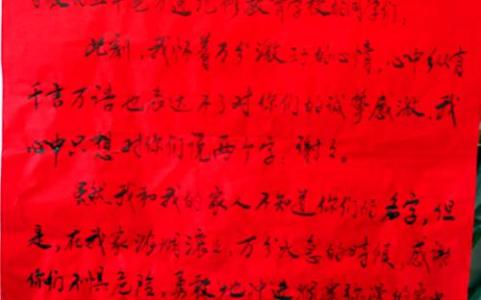 学校的同学们,
此刻,我怀着万分激动的心情,心中纵有
千言万语也表达不了对你们的诚挚感激,我
心中只想对你们说两个字,谢谢。
虽然我和我的家人不知道你们的名字,但
是,在我家浓烟滚滚,万分火急的时候,感谢
你们不惧危险,勇敢地冲进烟雾弥漫的